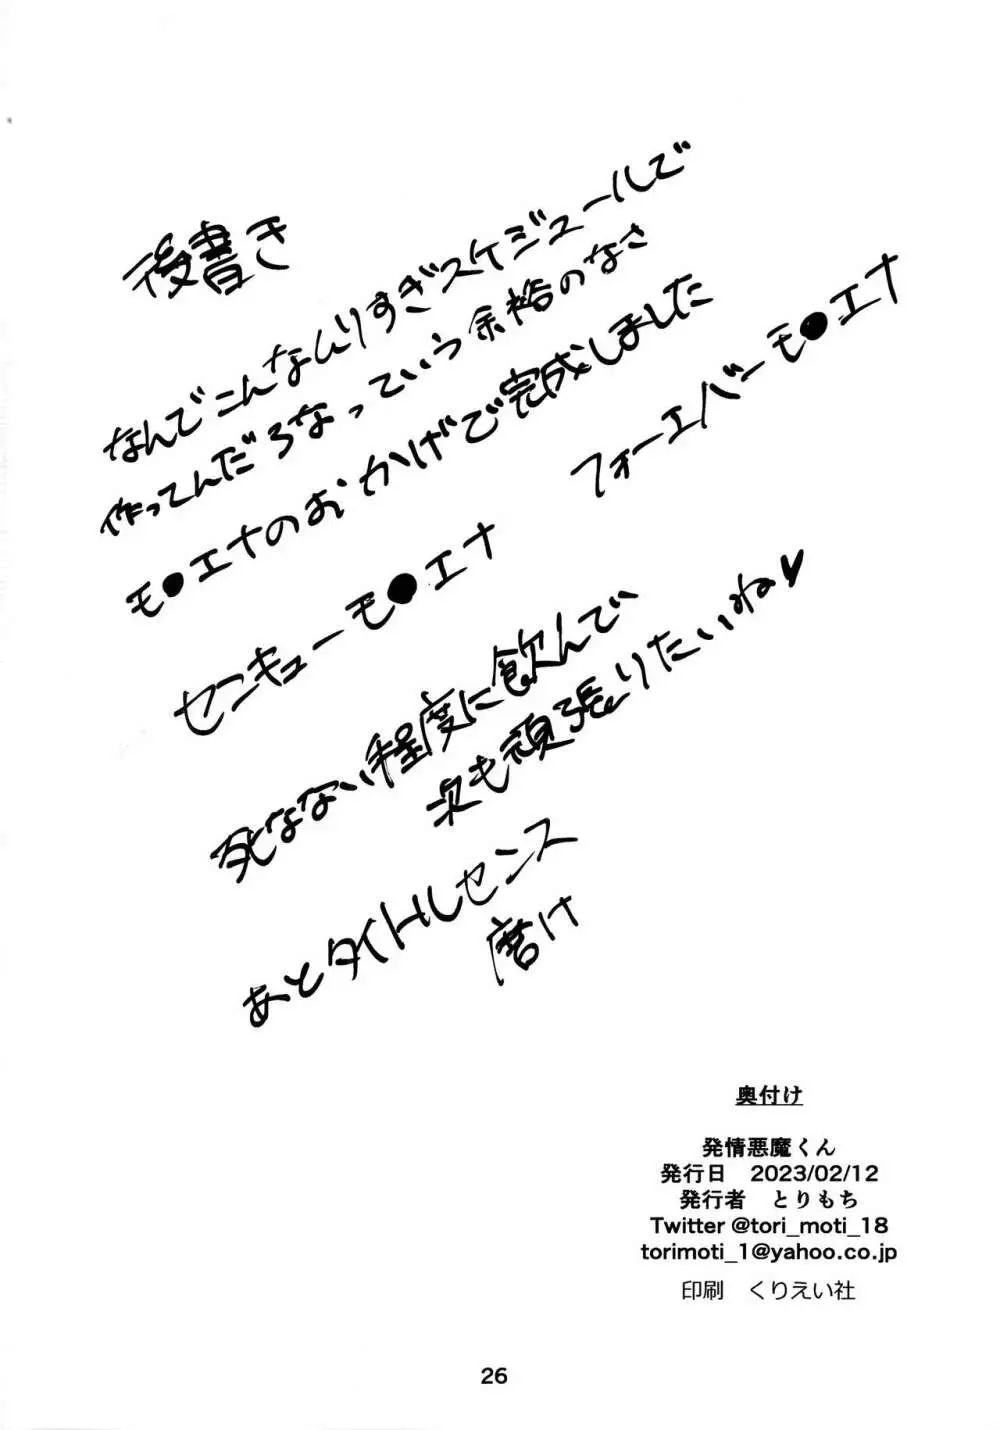 後書き
なんでこんなムリすぎスケジュールで
作ってんだろなっていう余裕のなさ
モ●エナのおかげで完成しました
センキューモ●エナ
フォーエバーモ●エナ
死なない程度に飲んで
次も頑張りたいね♥
あとタイトルセンス
磨け
奥付け
発情悪魔くん
発行日 2023/02/12
発行者 とりもち
Twitter @tori_moti_18
torimoti_1@yahoo.co.jp
印刷 くりえい社
26